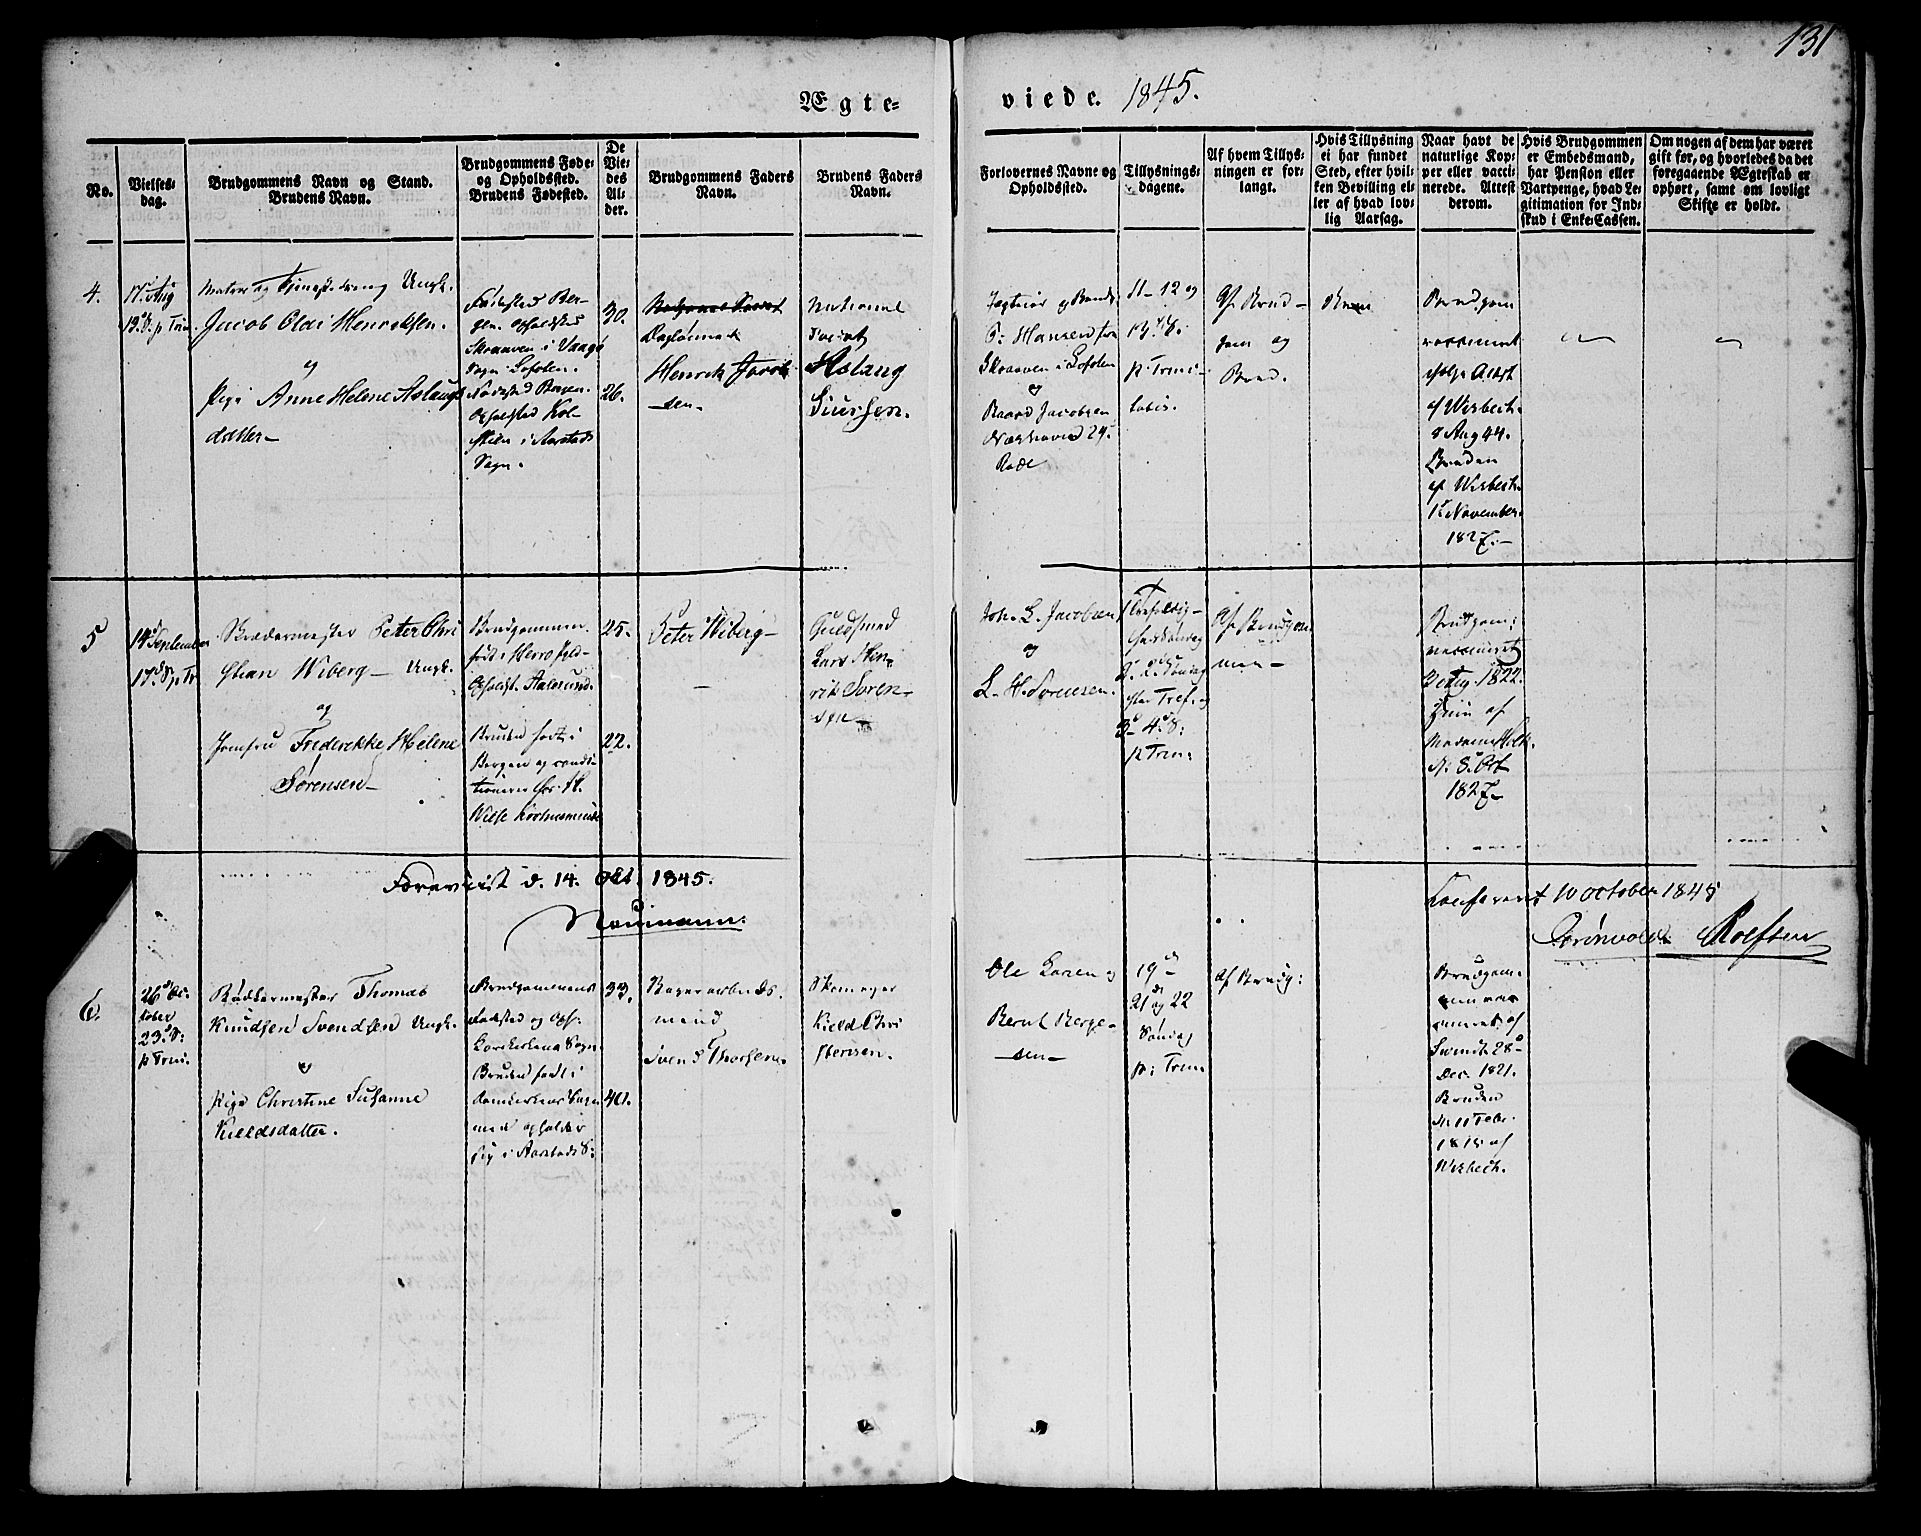 131
Ægte-
viede. 1845.
No.
Vielses-
dag.
Brudgommens Navn og Stand.
Brudens Navn.
Brudgommens Føde-
og Opholdssted.
Brudens Fødested.
De
Vie-
des
Al-
der.
Brudgommens Faders
Navn.
Brudens Faders
Navn.
Forlovernes Navne og
Opholdssted.
Tillysnings-
dagene.
Af hvem Tillys-
ningen er for-
langt.
Hvis Tillysning
ei har fundet
Sted, efter hvil-
ken Bevilling el-
ler af hvad lov-
lig Aarsag.
Naar havt de
naturlige Kop-
per eller vacci-
nerede. Attest
derom.
Hvis Brudgommen
er Embedsmand,
har Pension eller
Vartpenge, hvad Le-
gitimation for Ind-
skud i Enke-Cassen.
Om nogen af dem har været
gift før, og hvorledes da det
foregaaende Ægteskab er
ophørt, samt om lovligt
Skifte er holdt.
4.
17. Aug
13. S. p Trin
og Ungk.
Jacob Olai Henriksen.
og
Pige Anne Helene Aslaugs
datter
Fødested Ber-
gen. Opholdsted
Skraaven i Vaagø
Sogn Lofoten.
Fødested Bergen.
Opholdsted Kol-
stien i Aarstads
Sogn.
30.
26.
Henrik Jacob
sen
Aslaug
Siursen.
P: Hansen fra
Skraaven i Lofoten
og
Jacobsen
24.
Rode
11- 12 og
13 S.
p. Trini-
tatis.
Af Brud-
gom og
Brud.
Brudgom
vaccineret
ifølge Attest
af Wisbech.
8 Aug 44.
Bruden
af Wisbech.
November.
1827.
5
14 September
17. S. p. Tr
Skrædermester Peter Chri
stian Wiberg Ungk.
og
Jomfru Frederekke Helene
Sørensen
Brudgommen
født i Herro
Opholdst. Aalesund.
Bruden født i
Bergen og condi-
tionerer hos
25.
22.
Peter Wiberg
Guldsmed
Lars Hen-
rik Soren-
sen
Joh. L. Jacobsen
og
L. H. Sorensen.
3 4. S:
p. Trin:
Af Brudgom-
men
Brudgom:
vaccineret
1822.
af
Madame
8. Oct
1827
Forevist d. 14. Oct. 1845.
Neumann.
Confereret 10 October 1845
Grønvold. Rolfsen
6.
26 Oc-
tober
23. S:
p Trin.
Bødkermester Thomas
Knudsen Svendsen Ungk.
og
Pige Christine Susanne
Kieldsdatter.
Brudgommens
Fødested og Oph.
Korskirkens Sogn.
Bruden født i
Domkirkens Sogn
med opholder
sig i Aarstads S:
33.
40.
mand
Svend Thorsen.
Skomager
Kield Chri
stensen.
Ole Larsen og
Bernt Berge-
sen
19
21 og 22
Søndag
p: Trin
af Brudg:
Brudgom-
men vac
cineret af
Dec. 1821.
Bruden
af
Wisbech.